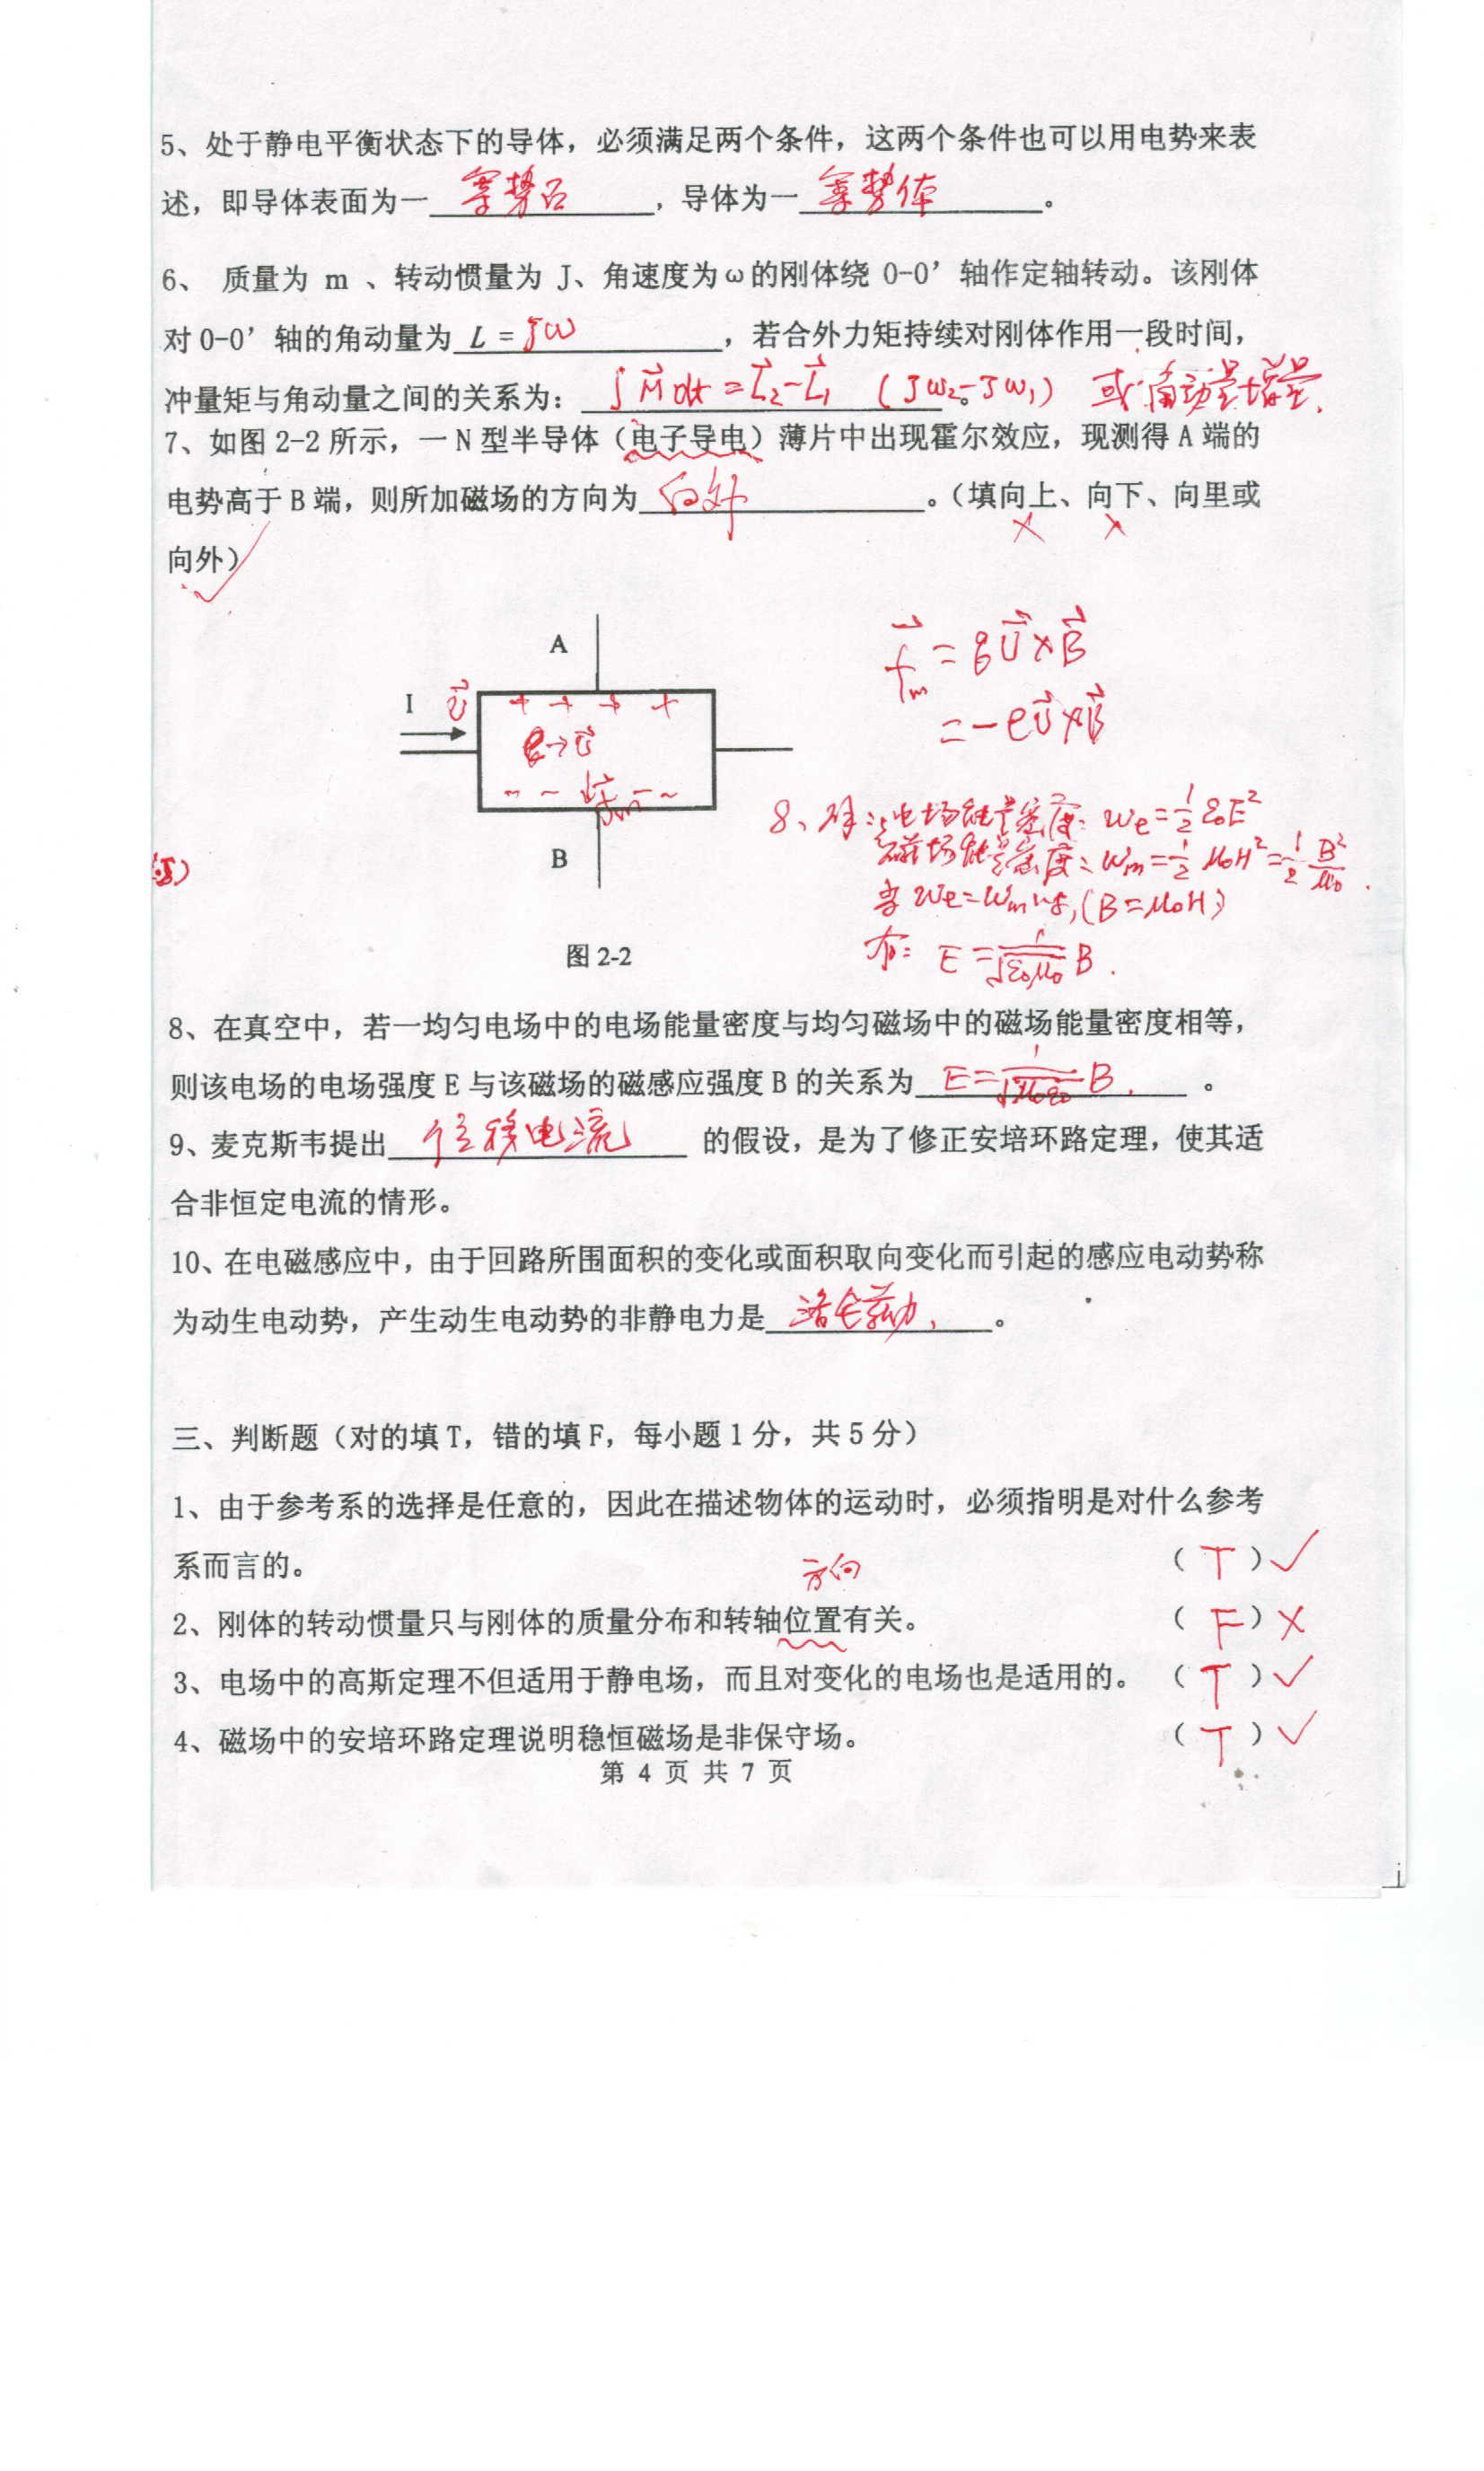 5、处于静电平衡状态下的导体，必须满足两个条件，这两个条件也可以用电势来表
述，即导体表面为一 等势面 ，导体为一 等势体 。
6、 质量为 m 、转动惯量为 J、角速度为ω的刚体绕 0-0' 轴作定轴转动。该刚体
对 0-0' 轴的角动量为 L = Jω ，若合外力矩持续对刚体作用一段时间，
冲量矩与角动量之间的关系为： ∫M⃗dt = L⃗₂-L⃗₁ (Jω₂-Jω₁) 。 或 角动量增量.
7、如图 2-2 所示，一 N 型半导体（电子导电）薄片中出现霍尔效应，现测得 A 端的
电势高于 B 端，则所加磁场的方向为 向外 。（填向上、向下、向里或
× ×
向外）
f⃗m = qv⃗×B⃗
= -ev⃗×B⃗
A
I v⃗ + + + +
e→v⃗
- - f⃗m - -
B
8、解：电场能量密度: we = 1/2 ε₀E²
磁场能量密度: wm = 1/2 μ₀H² = 1/2 B²/μ₀ .
当 we = wm 时, (B = μ₀H)
有: E = 1/√(ε₀μ₀) B .
图 2-2
8、在真空中，若一均匀电场中的电场能量密度与均匀磁场中的磁场能量密度相等，
则该电场的电场强度 E 与该磁场的磁感应强度 B 的关系为 E = 1/√(μ₀ε₀) B . 。
9、麦克斯韦提出 位移电流 的假设，是为了修正安培环路定理，使其适
合非恒定电流的情形。
10、在电磁感应中，由于回路所围面积的变化或面积取向变化而引起的感应电动势称
为动生电动势，产生动生电动势的非静电力是 洛仑兹力. 。
三、判断题（对的填 T，错的填 F，每小题 1 分，共 5 分）
1、由于参考系的选择是任意的，因此在描述物体的运动时，必须指明是对什么参考
系而言的。 （ T ）✓
方向
2、刚体的转动惯量只与刚体的质量分布和转轴位置有关。 （ F ）×
3、电场中的高斯定理不但适用于静电场，而且对变化的电场也是适用的。 （ T ）✓
4、磁场中的安培环路定理说明稳恒磁场是非保守场。 （ T ）✓
第 4 页 共 7 页